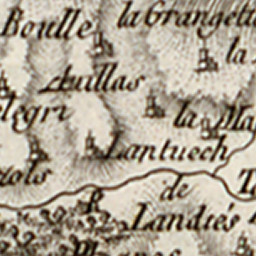 Boulle
la Grangett
la
Auillas
elegri
la Ma
Lantuech
zols
de
R
Landrés